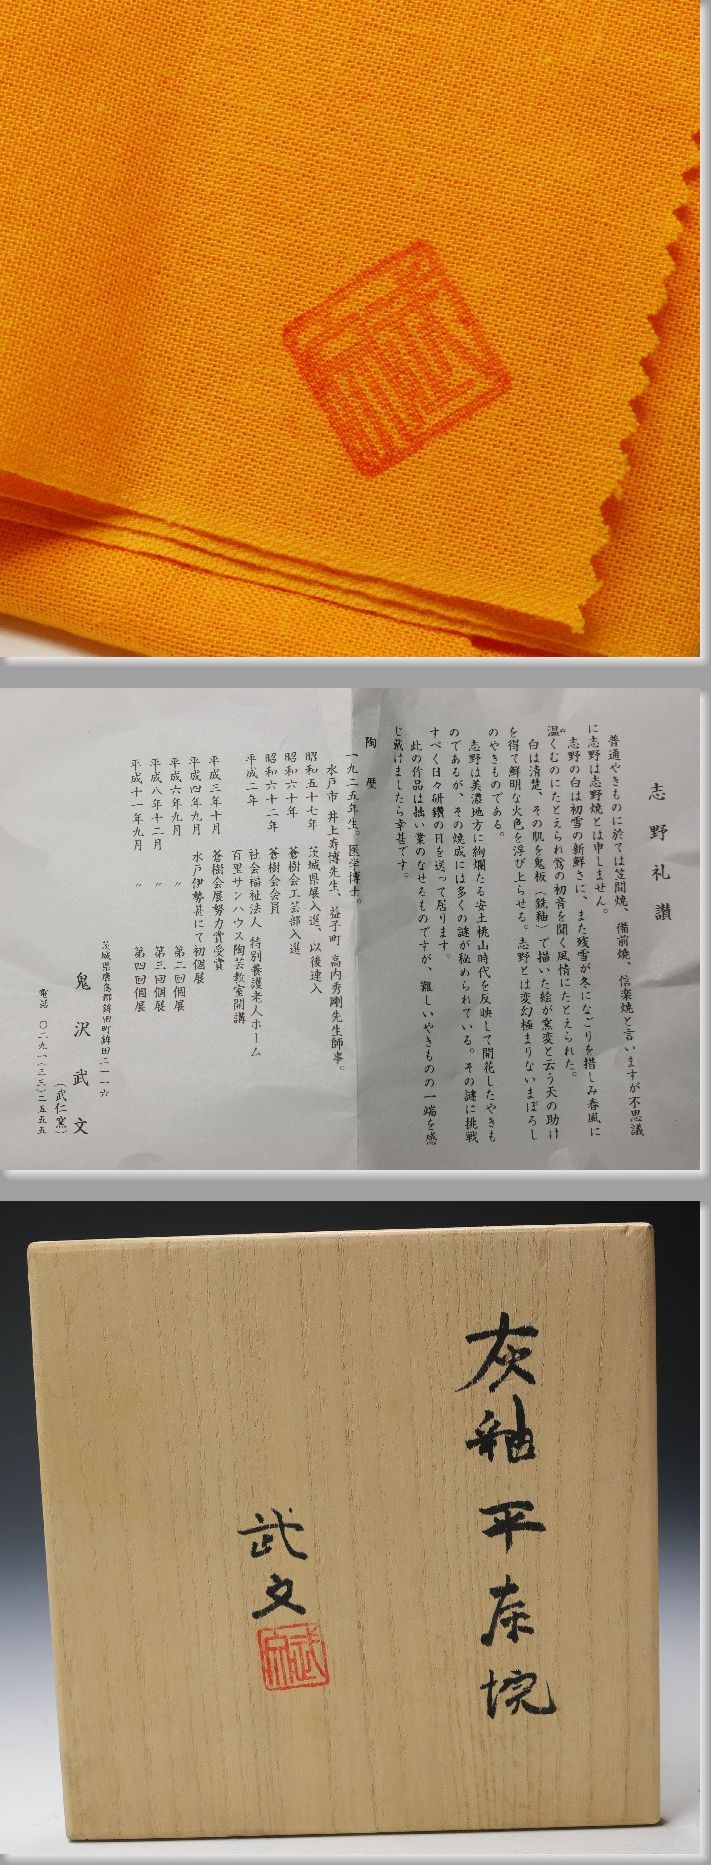 志野礼讃
普通やきものに於ては笠間焼、備前焼、信楽焼と言いますが不思議
に志野は志野焼とは申しません。
志野の白は初雪の新鮮さに、また残雪が冬になごりを措しみ春風に
温くむのにたとえられ鶯の初音を聞く風情にたとえられた。
白は清楚、その肌を鬼板(銕釉)で描いた絵が窯変と云う天の助け
を得て鮮明な火色を浮び上らせる。志野とは変幻極まりないまぼろし
のやきものである。
志野は美濃地方に絢爛たる安土桃山時代を反映して開花したやきも
のであるが、その焼成には多くの謎が秘められている。その謎に挑戦
すべく日々研鑽の日を送って居ります。
此の作品は拙い業のなせるものですが、難しいやきものの一端を感
じ戴けましたら幸甚です。
陶歴
一九二五年生。医学博士。
水戸市 井上寿博先生、益子町 高内秀剛先生師事。
昭和五十七年 茨城県展入選、以後連入
昭和六十年 蒼樹会工芸部入選
昭和六十二年 蒼樹会会員
平成二年 社会福祉法人 特別養護老人ホーム
百里サンハウス陶芸教室開講
平成三年十月 蒼樹会展努力賞受賞
平成四年九月 水戸伊勢甚にて初個展
平成六年九月 〃 第二回個展
平成八年十二月 〃 第三回個展
平成十一年九月 〃 第四回個展
茨城県鹿島郡鉾田町鉾田二一一六
鬼沢武文
(武仁窯)
電話 〇二九一(三三)二五五五
灰釉平茶垸
武文
武文